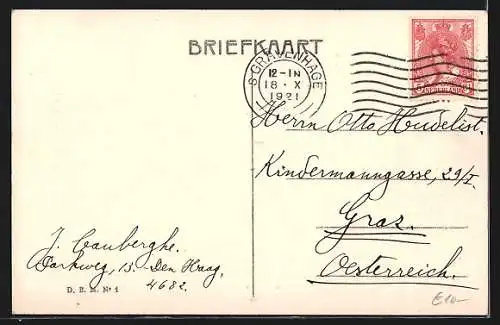 BRIEFKAART
'S GRAVENHAGE
12-1N
18·X
1921
NEDERLAND
Herrn Otto Hudelist.
Kindermanngasse, 29/I.
Graz.
Oesterreich.
J. Cauberghe.
Parkweg, 13. Den Haag,
4682.
D. B. M. Nº 1
€10-